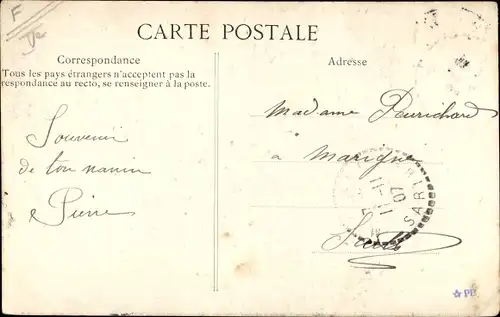 CARTE POSTALE
Correspondance
Tous les pays étrangers n'acceptent pas la
respondance au recto, se renseigner à la poste.
Adresse
Souvenir
de ton
Pierre
Madame
a Marigné
SART
07